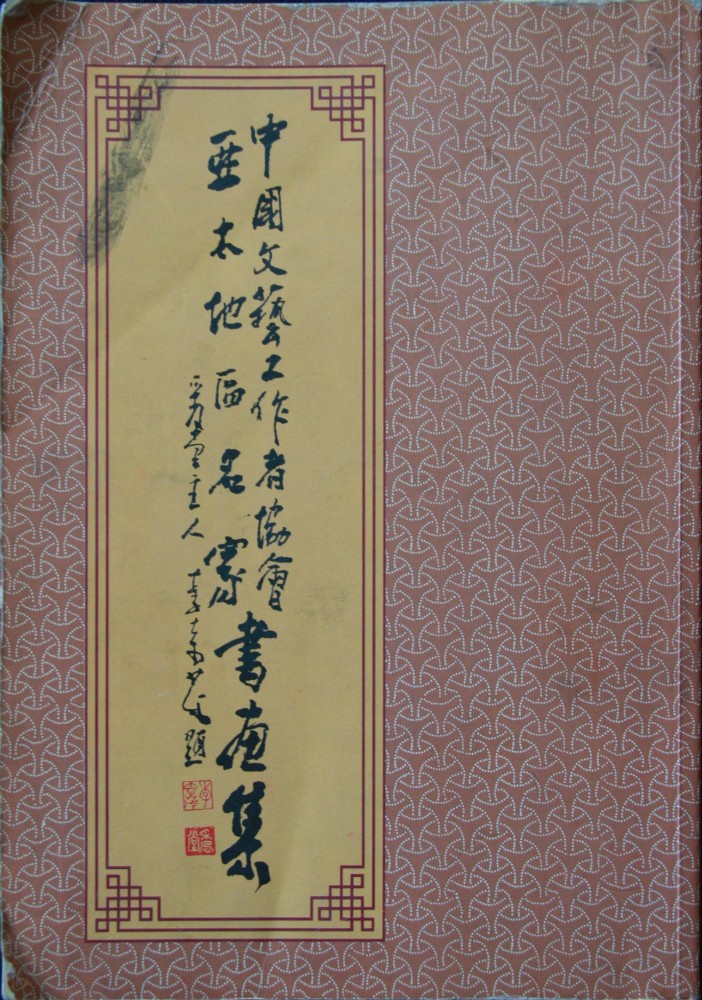 中國文藝工作者協會
亞太地區名家書畫集
主人 李 題